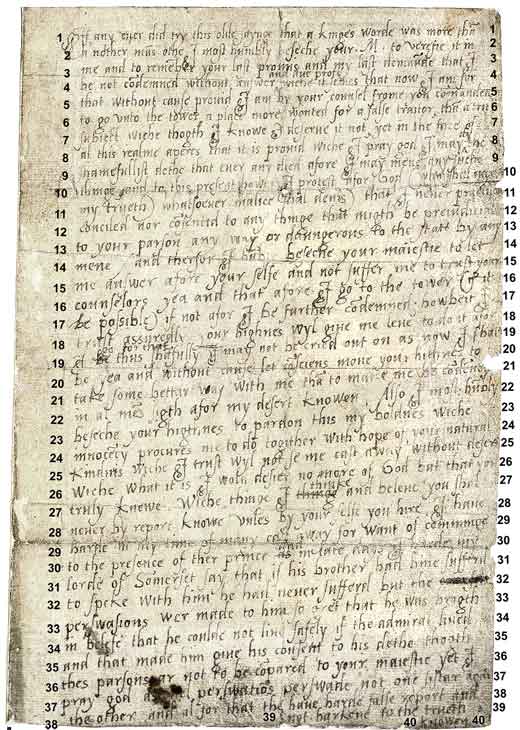 1 If any ever did try this olde saynge that a kinges worde was more tha 1
2 a nother mas othe I most humbly beseche your M. to verefie it in 2
3 me and to remeber your last promis and my last demande that I 3
and due profe
4 be not codemned without answer wiche it semes that now I am for 4
5 that without cause provid I am by your counsel frome you comanded 5
6 to go unto the tower a place more wonted for a false traitor, tha a tru 6
7 subject wiche thogth I knowe I deserve it not, yet in the face of 7
8 al this realme aperes that it is provid wiche I pray god I may dy the 8
9 shamefullist dethe that ever any died afore I may mene any suche 9
10 thinge and to this present hower I protest afor God who shal juge 10
11 my trueth whatsoever malice shal devis that I never practised 11
12 conciled nor cosentid to any thinge that migth be prejudicial 12
13 to your parson any way or daungerous to the stat by any 13
14 mene and therfor I hubly beseche your maiestie to let 14
15 me answer afore your selfe and not suffer me to trust your 15
16 counselors yea and that afore I go to the tower if it 16
17 be possible if not afor I be further codemned howbeit 17
18 I trust assuredly your highnes wyl give me leve to do it afor 18
19 I go for that thus shamfully I may not be cried out on as now I shal 19
20 be yea and without cause let cosciens move your highnes to 20
21 take some bettar way with me tha to make me be codemned 21
22 in al mes sigth afor my desert knowen. Also I most hubly 22
23 beseche your highnes to pardon this my boldnes wiche 23
24 innocecy procures me to do togither with hope of your natural 24
25 kindnis wiche I trust wyl not se me cast away without desert 25
26 wiche what it is I wold desier no more of God but that you 26
27 truly knewe. Wiche thinge I thinke and beleve you shal 27
28 never by report knowe unles by your selfe you hire I have 28
29 harde in my time of many cast away for want of comminge 29
30 to the presence of ther prince and in late days I harde my 30
31 lorde of Somerset say that if his brother had bine sufferd 31
32 to speke with him he had never sufferd but the 32
33 perswasions wer made to him so gret that he was brogth 33
34 in belefe that he coulde not live safely if the admiral lived 34
35 and that made him give his consent to his dethe thogth 35
36 thes parsons ar not to be copared to your maiestie yet I 36
37 pray god as ivel perswations perswade not one sistar again 37
38 the other and al for that the have harde false report and 38
39 not harkene to the trueth 39
40 knowen 40